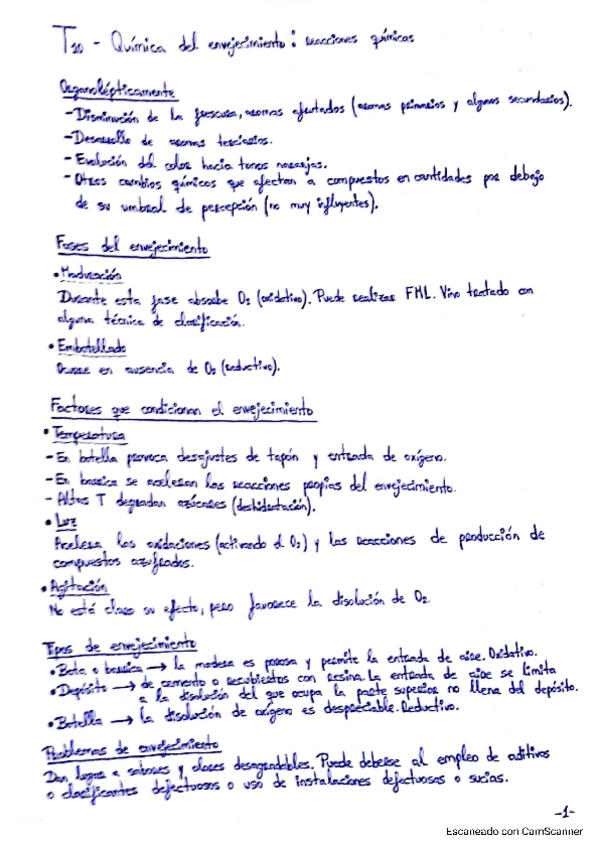 T10 - Química del envejecimiento: reacciones químicas
Organolépticamente
- Disminución de la frescura, aromas afectados (aromas primarios y algunos secundarios).
- Desarrollo de aromas terciarios.
- Evolución del color hacia tonos naranjas.
- Otros cambios químicos que afectan a compuestos en cantidades por debajo
de su umbral de percepción (no muy influyentes).
Fases del envejecimiento
• Maduración
Durante esta fase absorbe O2 (oxidativo). Puede realizar FML. Vino tratado con
alguna técnica de clarificación.
• Embotellado
Ocurre en ausencia de O2 (reductivo).
Factores que condicionan el envejecimiento
• Temperatura
- En botella provoca desajustes de tapón y entrada de oxígeno.
- En barrica se aceleran las reacciones propias del envejecimiento.
- Altas T degradan azúcares (deshidratación).
• Luz
Acelera las oxidaciones (activando el O2) y las reacciones de producción de
compuestos azufrados.
• Agitación
No está claro su efecto, pero favorece la disolución de O2.
Tipos de envejecimiento
• Bota o barrica → la madera es porosa y permite la entrada de aire. Oxidativo.
• Depósito → de cemento o recubiertos con resina. La entrada de aire se limita
a la disolución del que ocupa la parte superior no llena del depósito.
• Botella → la disolución de oxígeno es despreciable. Reductivo.
Problemas de envejecimiento
Dan lugar a sabores y olores desagradables. Puede deberse al empleo de aditivos
o clarificantes defectuosos o uso de instalaciones defectuosas o sucias.
-1-
Escaneado con CamScanner